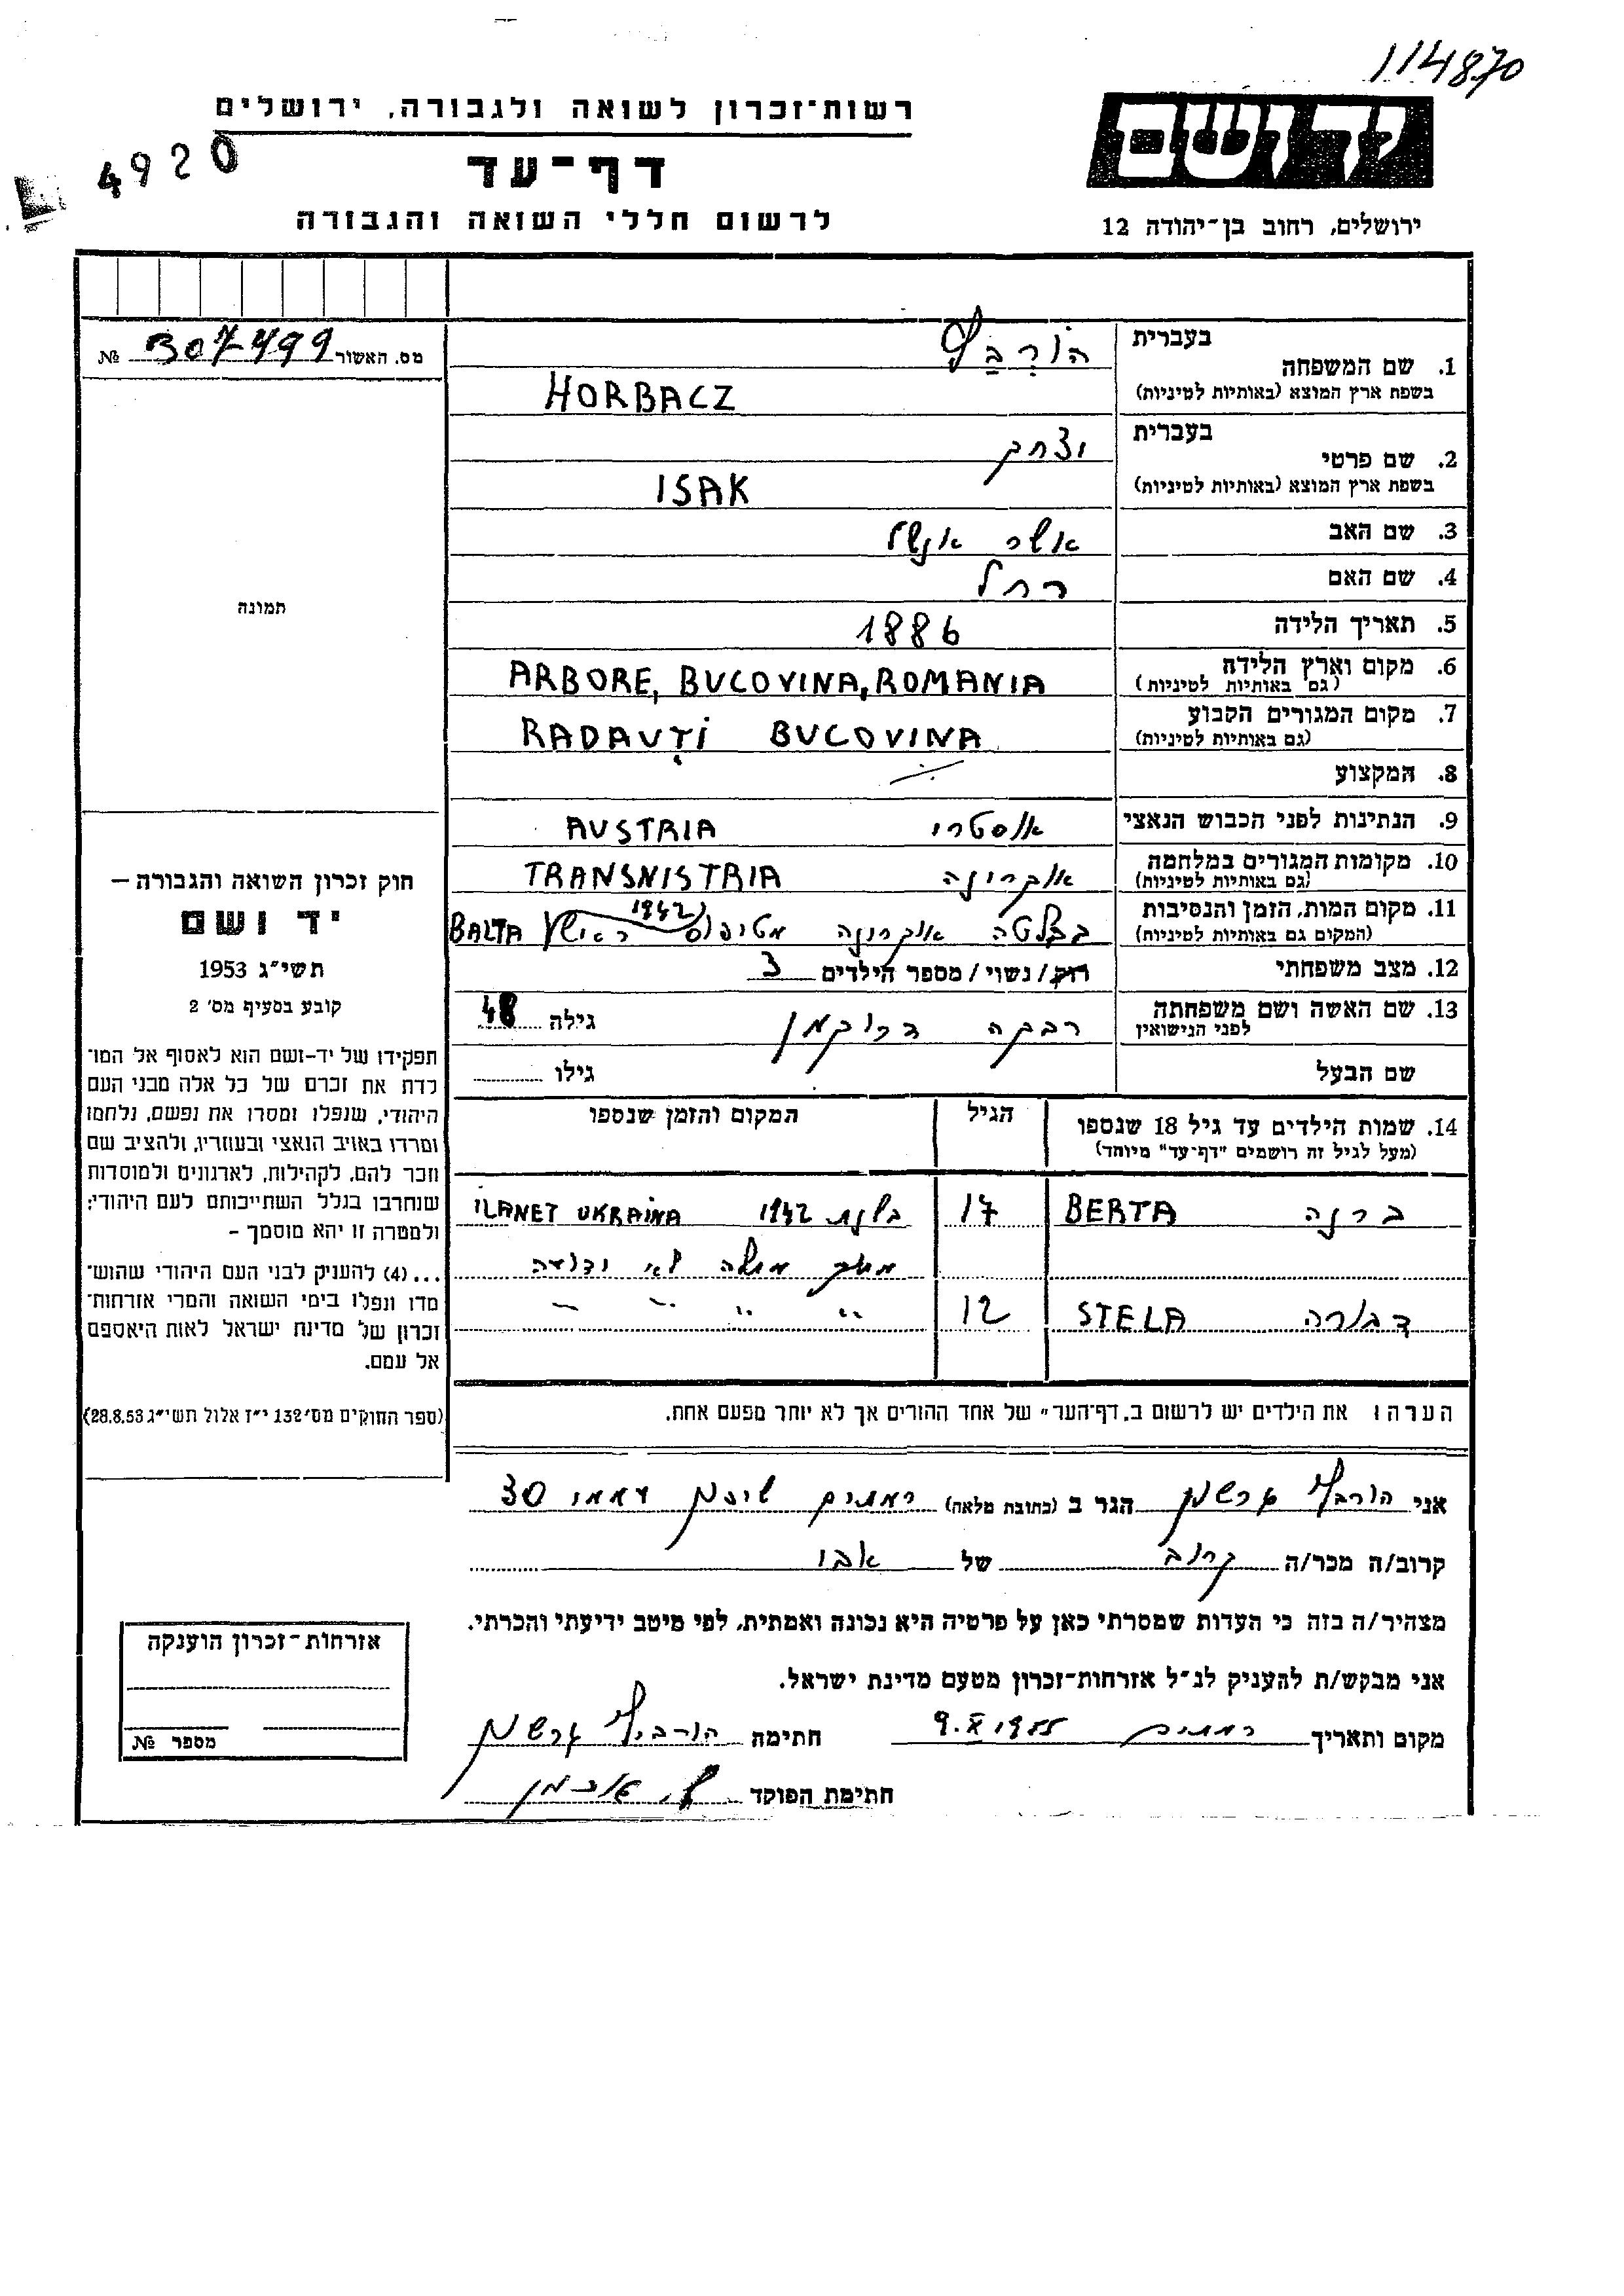 114870
רשות־זכרון לשואה ולגבורה, ירושלים
4920
ידושם
דף־עד
ירושלים, רחוב בן־יהודה 12
לרשום חללי השואה והגבורה
מס. האשור 307499 №
תמונה
1. שם המשפחה
בעברית
הוֹרְבַּץ'
בשפת ארץ המוצא (באותיות לטיניות)
HORBACZ
2. שם פרטי
בעברית
יצחק
בשפת ארץ המוצא (באותיות לטיניות)
ISAK
3. שם האב אשר אנשל
4. שם האם רחל
5. תאריך הלידה 1886
6. מקום וארץ הלידה ARBORE, BUCOVINA, ROMANIA
(גם באותיות לטיניות)
7. מקום המגורים הקבוע RADAUŢI BUCOVINA
(גם באותיות לטיניות)
8. המקצוע
9. הנתינות לפני הכבוש הנאצי אוסטרי AUSTRIA
10. מקומות המגורים במלחמה אוקרינה TRANSNISTRIA
(גם באותיות לטיניות)
11. מקום המות, הזמן והנסיבות בבלטה אוקרינה מטיפוס 1942 BALTA
(המקום גם באותיות לטיניות)
12. מצב משפחתי רוק/ נשוי/ מספר הילדים 3
13. שם האשה ושם משפחתה רבקה ברוקמן גילה 48
לפני הנישואין
שם הבעל גילו
14. שמות הילדים עד גיל 18 שנספו הגיל המקום והזמן שנספו
(מעל לגיל זה רושמים "דף־עד" מיוחד)
BERTA 17 בשנת 1942 ILANET UKRAINA
לא
דבורה STELA 12 " " "
הערה: את הילדים יש לרשום ב„דף־העד" של אחד ההורים אך לא יותר מפעם אחת.
חוק זכרון השואה והגבורה —
יד ושם
תשי״ג 1953
קובע בסעיף מס׳ 2
תפקידו של יד־ושם הוא לאסוף אל המו־
לדת את זכרם של כל אלה מבני העם
היהודי, שנפלו ומסרו את נפשם, נלחמו
ומרדו באויב הנאצי ובעוזריו, ולהציב שם
וזכר להם, לקהילות, לארגונים ולמוסדות
שנחרבו בגלל השתייכותם לעם היהודי;
ולמטרה זו יהא מוסמך —
... (4) להעניק לבני העם היהודי שהוש־
מדו ונפלו בימי השואה והמרי אזרחות־
זכרון של מדינת ישראל לאות היאספם
אל עמם.
(ספר החוקים מס׳ 132 י״ז אלול תשי״ג 28.8.53)
אני הורביץ גרשון הגר ב (כתובת מלאה) רמתיים שיכון עממי 30
קרוב/ה מכר/ה קרוב של אבי
מצהיר/ה בזה כי העדות שמסרתי כאן על פרטיה היא נכונה ואמתית, לפי מיטב ידיעתי והכרתי.
אני מבקש/ת להעניק לנ״ל אזרחות־זכרון מטעם מדינת ישראל.
מקום ותאריך רמתיים 9.X 1955 חתימה הורביץ גרשון
חתימת הפוקד
אזרחות־זכרון הוענקה
מספר №